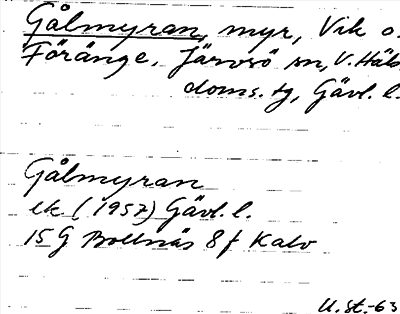 Gålmyran, myr, Vik o.
Föränge, Järvsö sn, V. Häls.
doms. tg, Gävl. l.
Gålmyran
ek (1957) Gävl. l.
15 G Bollnäs 8 f Kalv
U. St. -63